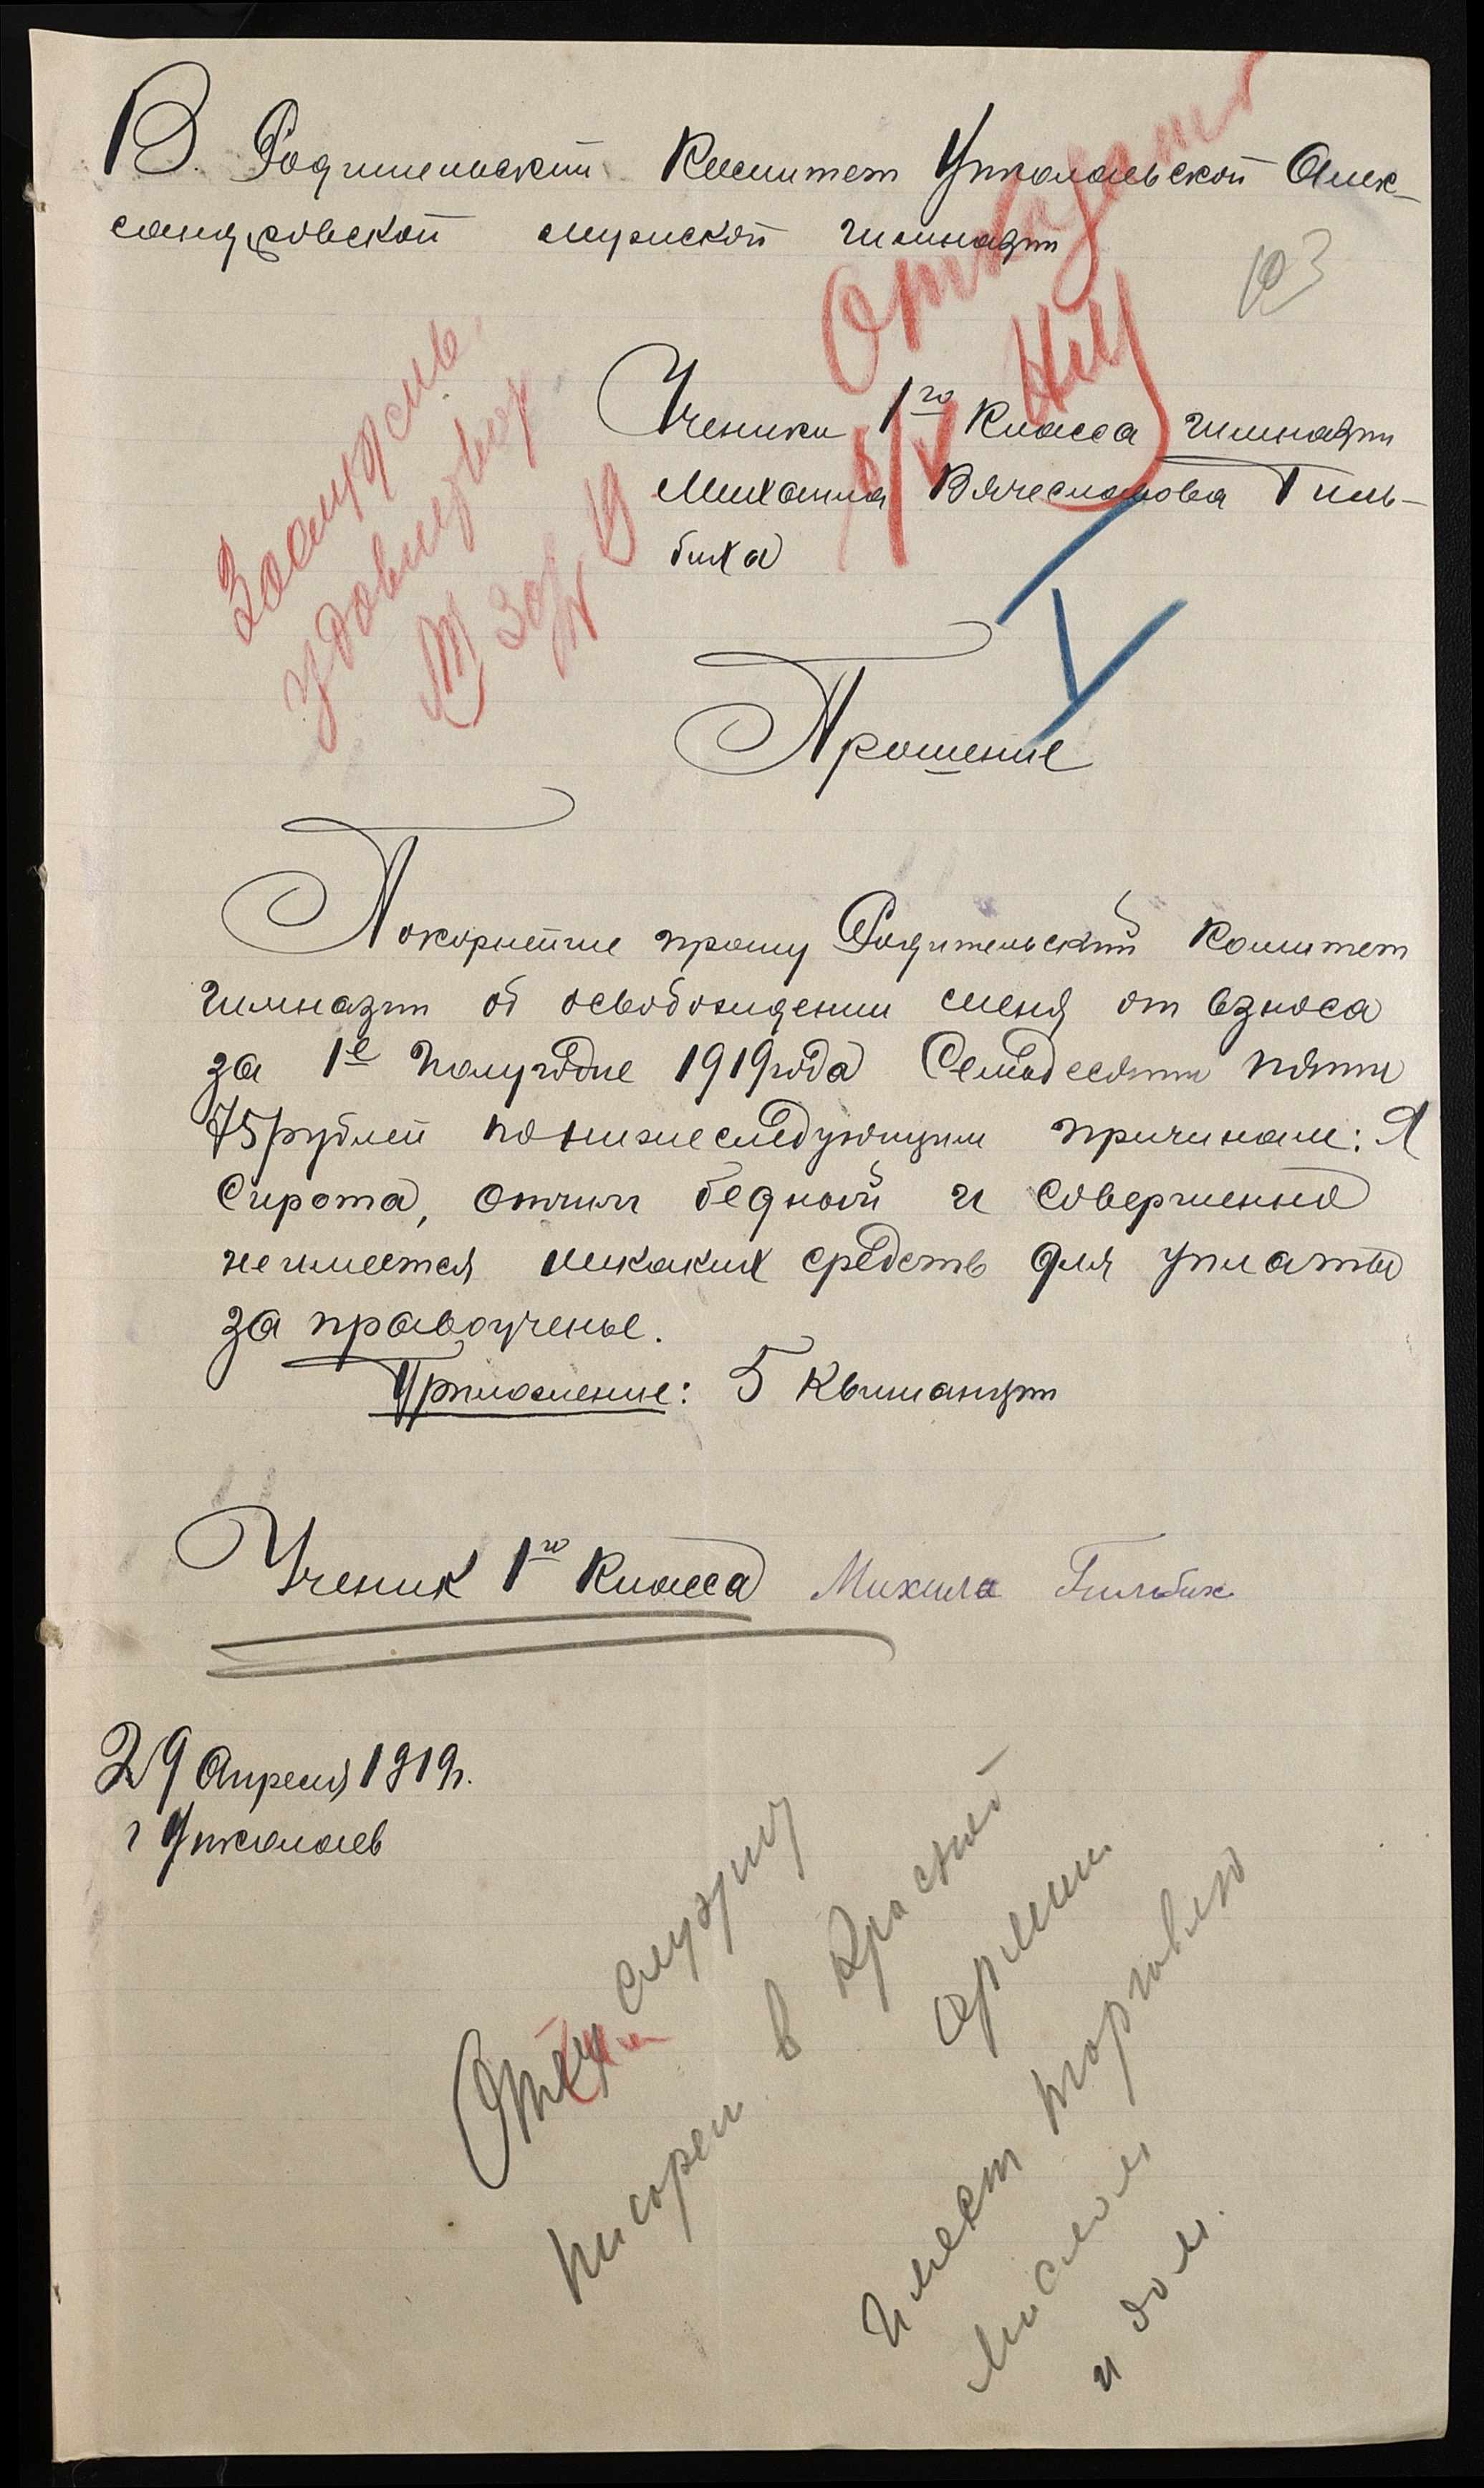 В Родительский Комитет Николаевской Алек-
сандровской мужской гимназии
103
Отказать
Ученика 1го Класса гимназии
Михаила Вячеславова Гиль-
биха
Заслужив.
удовлетвор.
30/IV 19
Прошение
Покорнейше прошу Родительский Комитет
гимназии об освобождении меня от взноса
за 1е полугодие 1919 года Семьдесяти пяти
75 рублей по нижеследующим причинам: Я
Сирота, отчим бедной и совершенно
не имеется никаких средств для уплаты
за правоученье.
Приложение: 5 Квитанций
Ученик 1го Класса Михаил Гильбих
29 Апреля 1919 г.
г Николаев
Отец служит
писарем в Красной
армии.
Имеет торговлю
маслом
и дом.